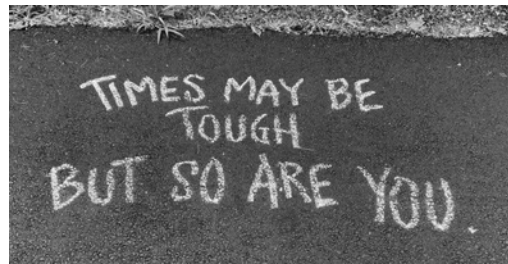 TIMES MAY BE
TOUGH
BUT SO ARE YOU.